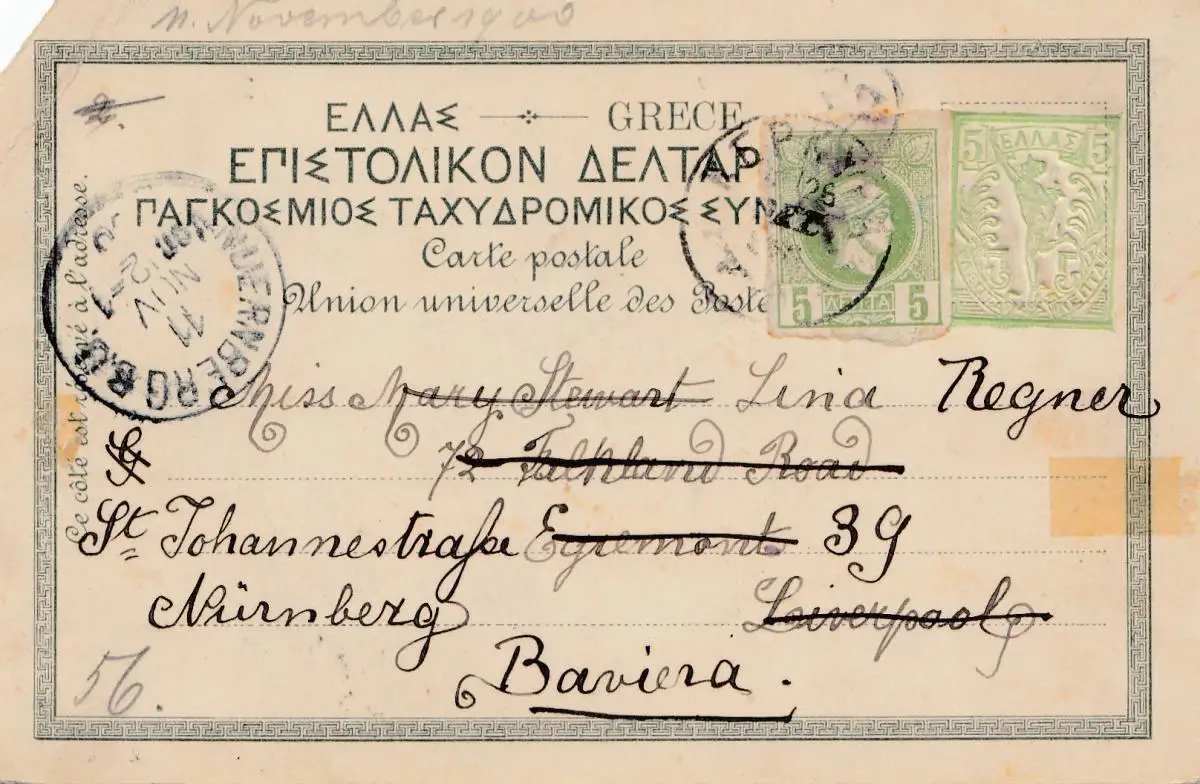 11. November 1900
ΕΛΛΑΣ GRECE
ΕΠΙΣΤΟΛΙΚΟΝ ΔΕΛΤΑΡ
ΠΑΓΚΟΣΜΙΟΣ ΤΑΧΥΔΡΟΜΙΚΟΣ ΣΥΝ
Carte postale
Union universelle des Poste
Ce côté est réservé à l'adresse.
NUERNBERG
5 ΛΕΠΤΑ 5
5 ΕΛΛΑΣ 5
Miss Mary Stewart Lina Regner
72 Falkland Road
St Johannestraße Egremont 39
Nürnberg Liverpool
Baviera.
56.